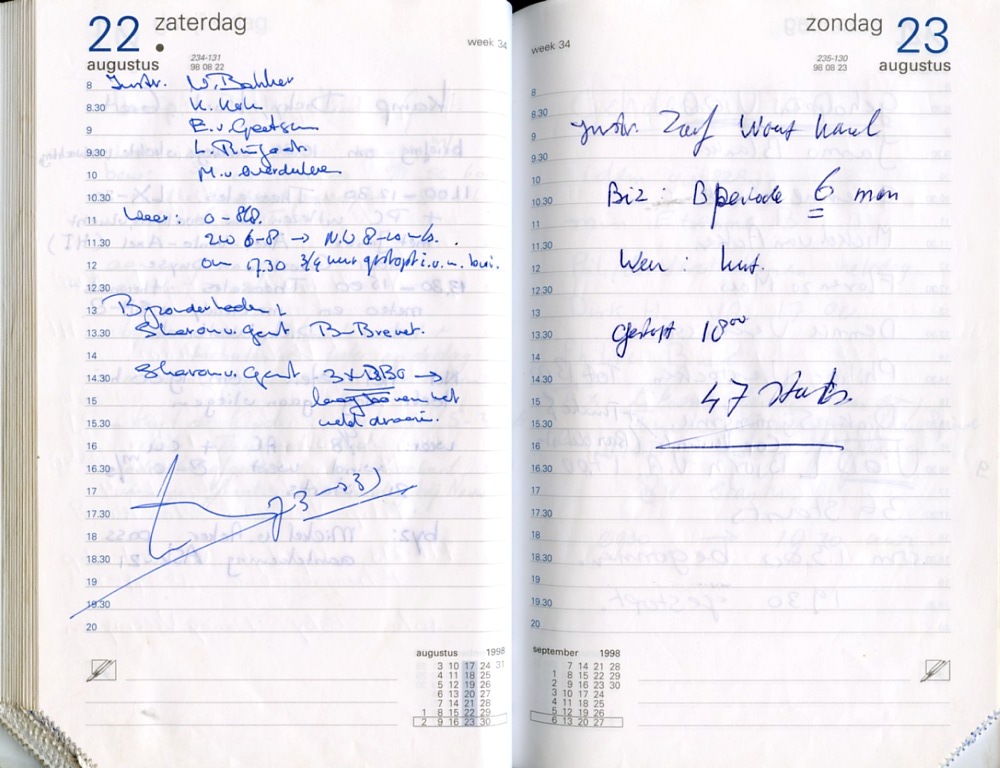 22 zaterdag
augustus
week 34
234-131
98 08 22
8
Instr. W. Bakker
8.30
K. Kok
9
E. v. Geetsum
9.30
L.
10
M. v. Overdulve
10.30
11
Weer: 0 - 8/8.
11.30
ZW 6-8 → N.W 8-10 kts.
12
om 17.30 3/4 uur gestopt i.v.m. bui.
12.30
13
Byzonderheden:
13.30
Sharon v. Gent B-Brevet.
14
14.30
Sharon v. Gent 3x BBO →
15
laag boven het
15.30
veld draaien.
16
16.30
17
73
17.30
18
18.30
19
19.30
20
augustus 1998
3 10 17 24 31
4 11 18 25
5 12 19 26
6 13 20 27
7 14 21 28
1 8 15 22 29
2 9 16 23 30
zondag 23
augustus
week 34
235-130
98 08 23
8
8.30
Instr. Wout Karel
9
9.30
10
Biz: B periode 6 man
10.30
11
11.30
12
Weer:
12.30
13
13.30
Gestopt 18⁰⁰
14
14.30
15
47 starts.
15.30
16
16.30
17
17.30
18
18.30
19
19.30
20
september 1998
7 14 21 28
1 8 15 22 29
2 9 16 23 30
3 10 17 24
4 11 18 25
5 12 19 26
6 13 20 27